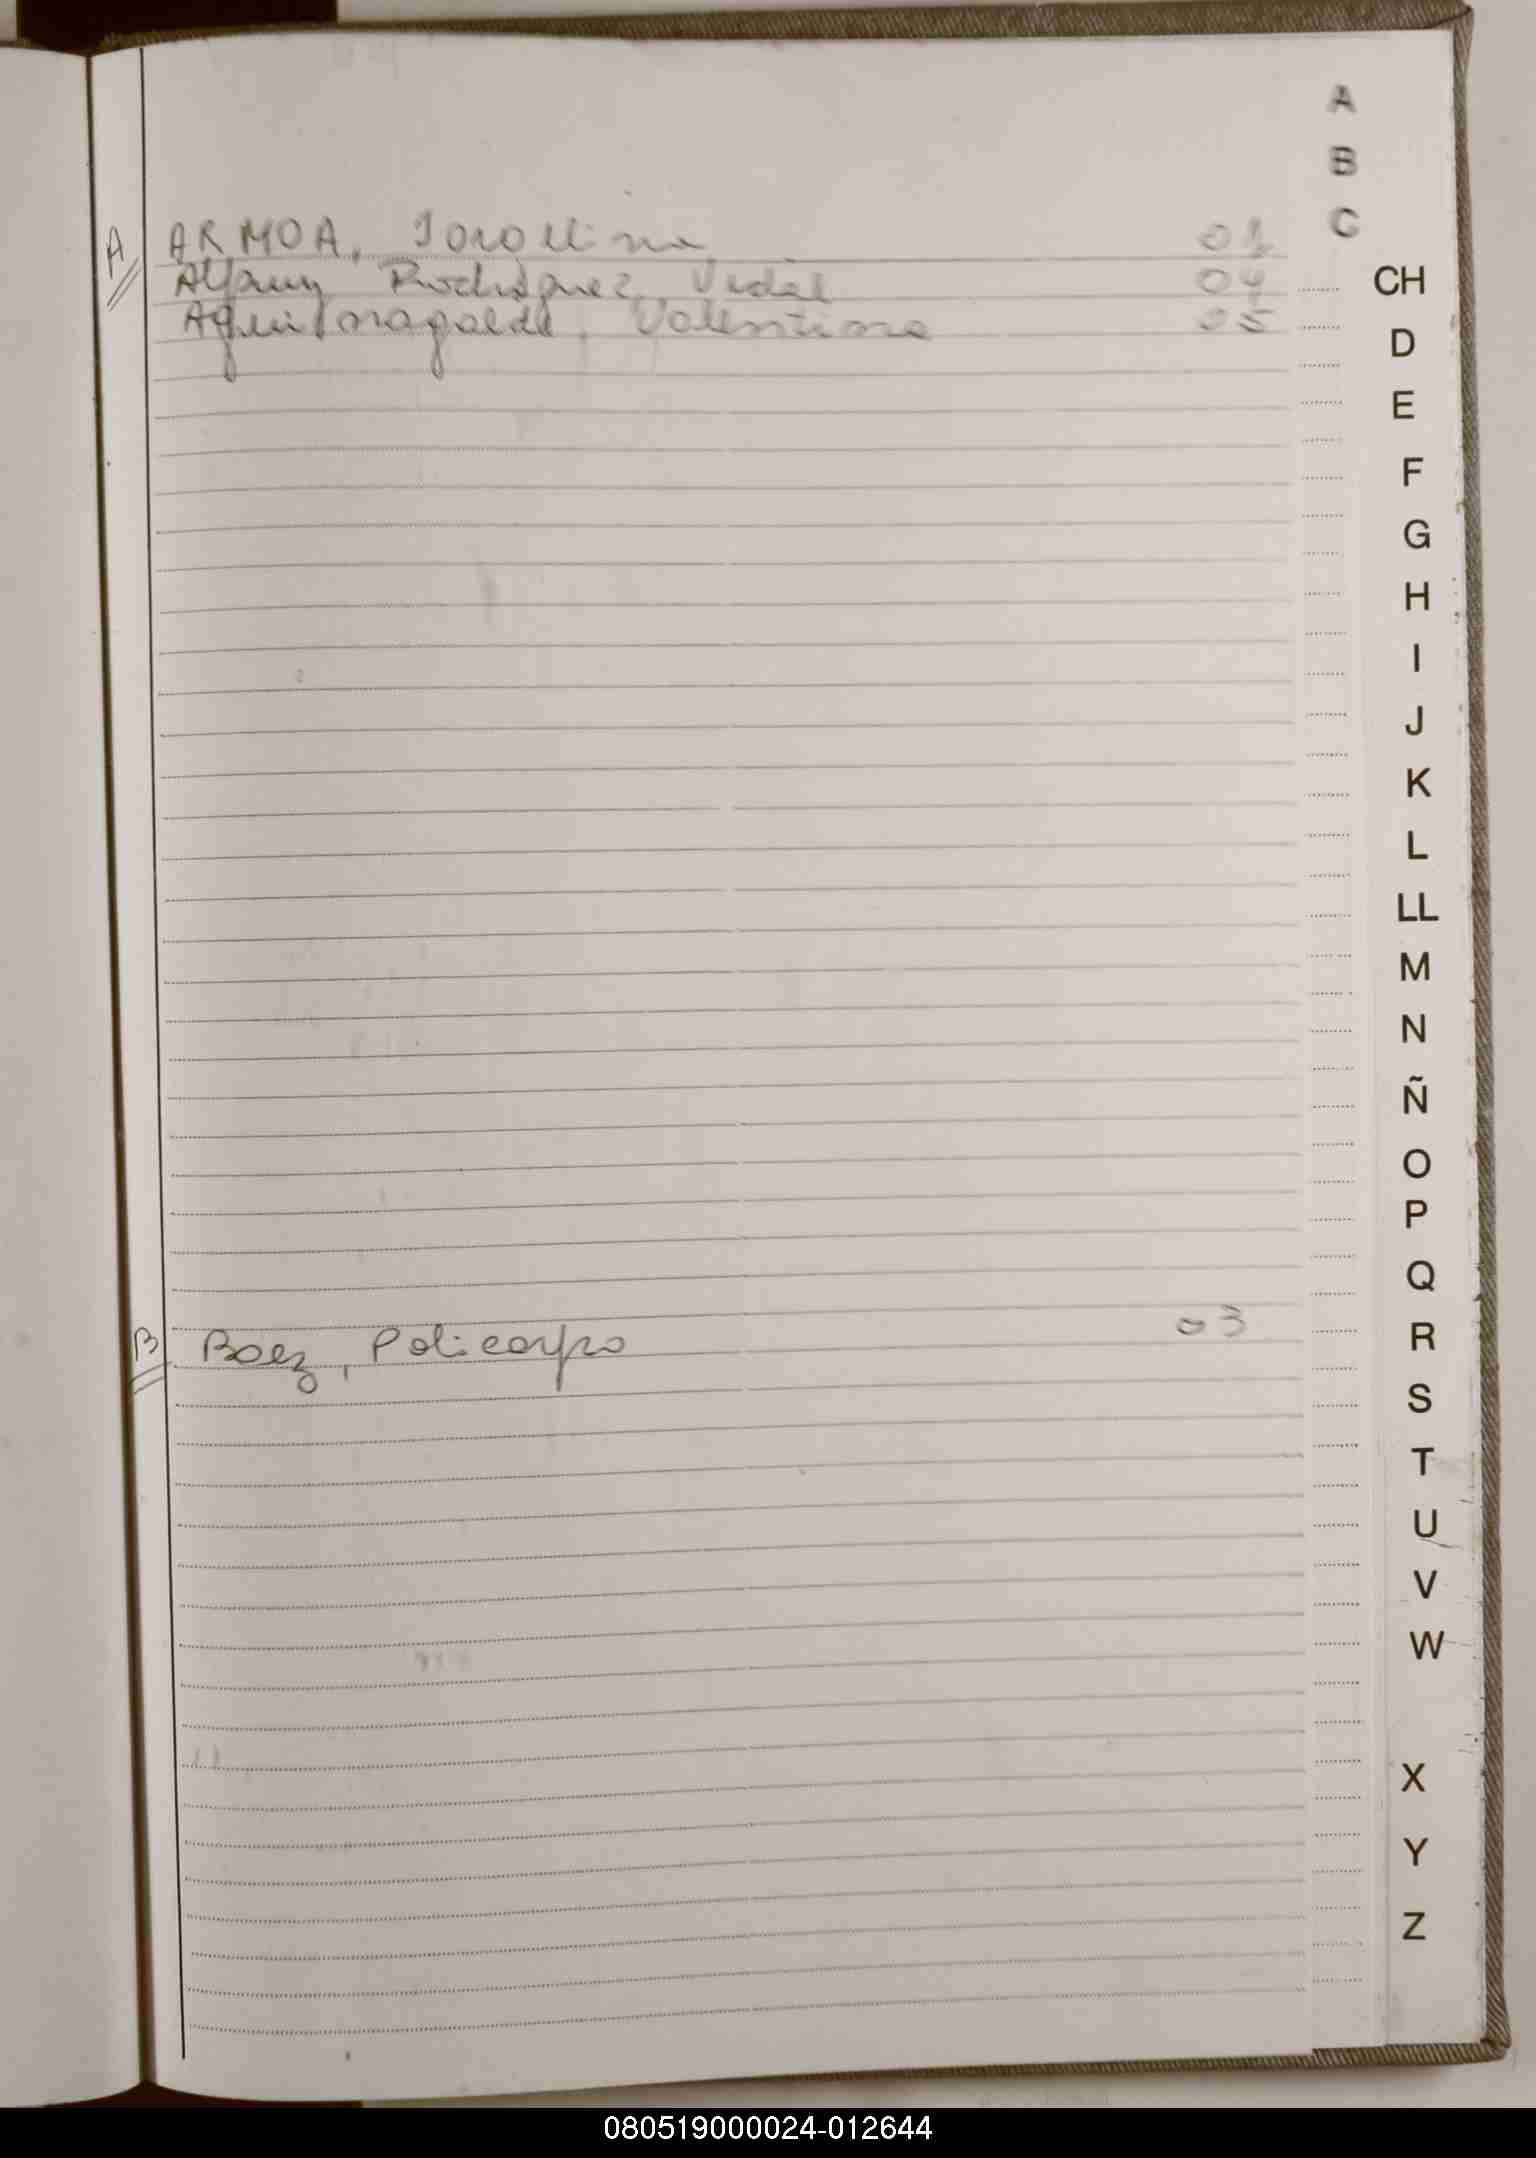 A
B
C
A ARMOA, 01
Rodriguez, Vidal 04
CH
Valentina 05
D
E
F
G
H
I
J
K
L
LL
M
N
Ñ
O
P
Q
B Baez, Policarpo 03
R
S
T
U
V
W
X
Y
Z
080519000024-012644